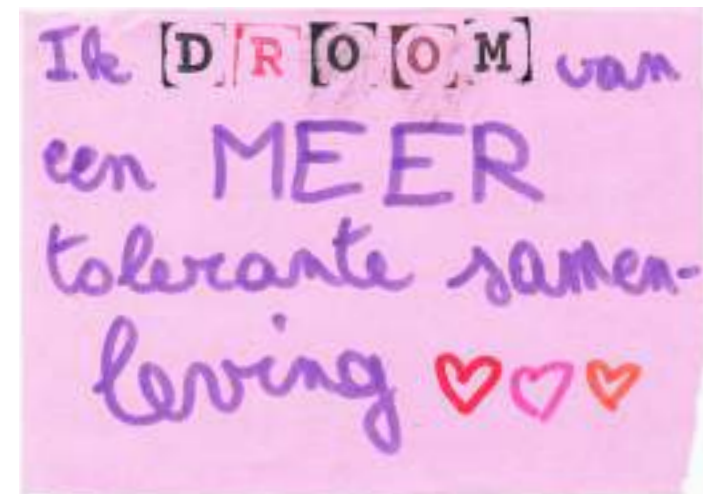 Ik DROOM van
een MEER
tolerante samen-
leving